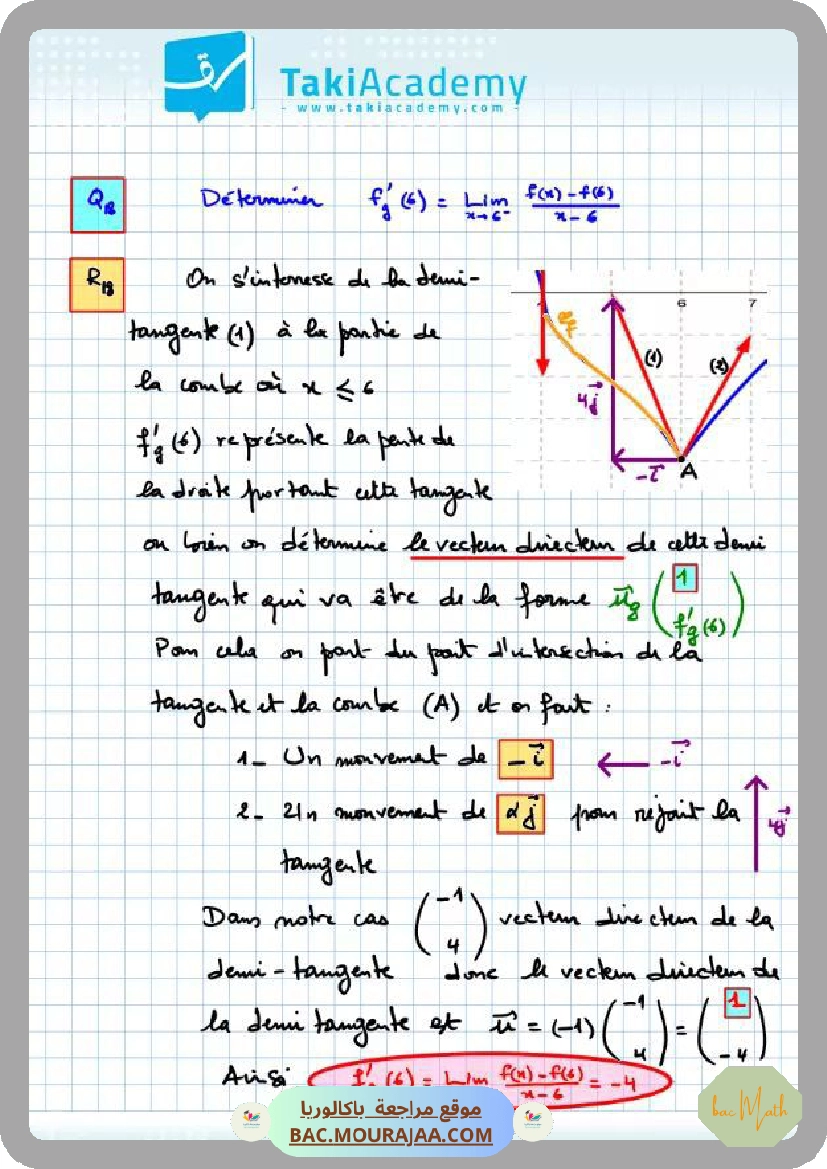 TakiAcademy
- www.takiacademy.com -
Q18 Déterminer f'g(6) = Lim x→6⁻ f(x) - f(6) / x - 6
R18 On s'interesse de la demi-
tangente (1) à la partie de
la courbe où x ≤ 6
f'g(6) représente la pente de
la droite portant cette tangente
6 7
(1) (2)
4j
-i A
ou bien on détermine le vecteur directeur de cette demi
tangente qui va être de la forme ug ( 1
f'g(6) )
Pour cela on part du point d'intersection de la
tangente et la courbe (A) et on fait :
1- Un mouvement de -i ← -i
2- Un mouvement de αj pour rejoint la 4j
tangente
Dans notre cas ( -1
4 ) vecteur directeur de la
demi-tangente donc le vecteur directeur de
la demi tangente est u = (-1) ( -1
4 ) = ( 1
-4 )
Ainsi f'g(6) = Lim f(x) - f(6) / x - 6 = -4
موقع مراجعة باكالوريا
BAC.MOURAJAA.COM
bac Math